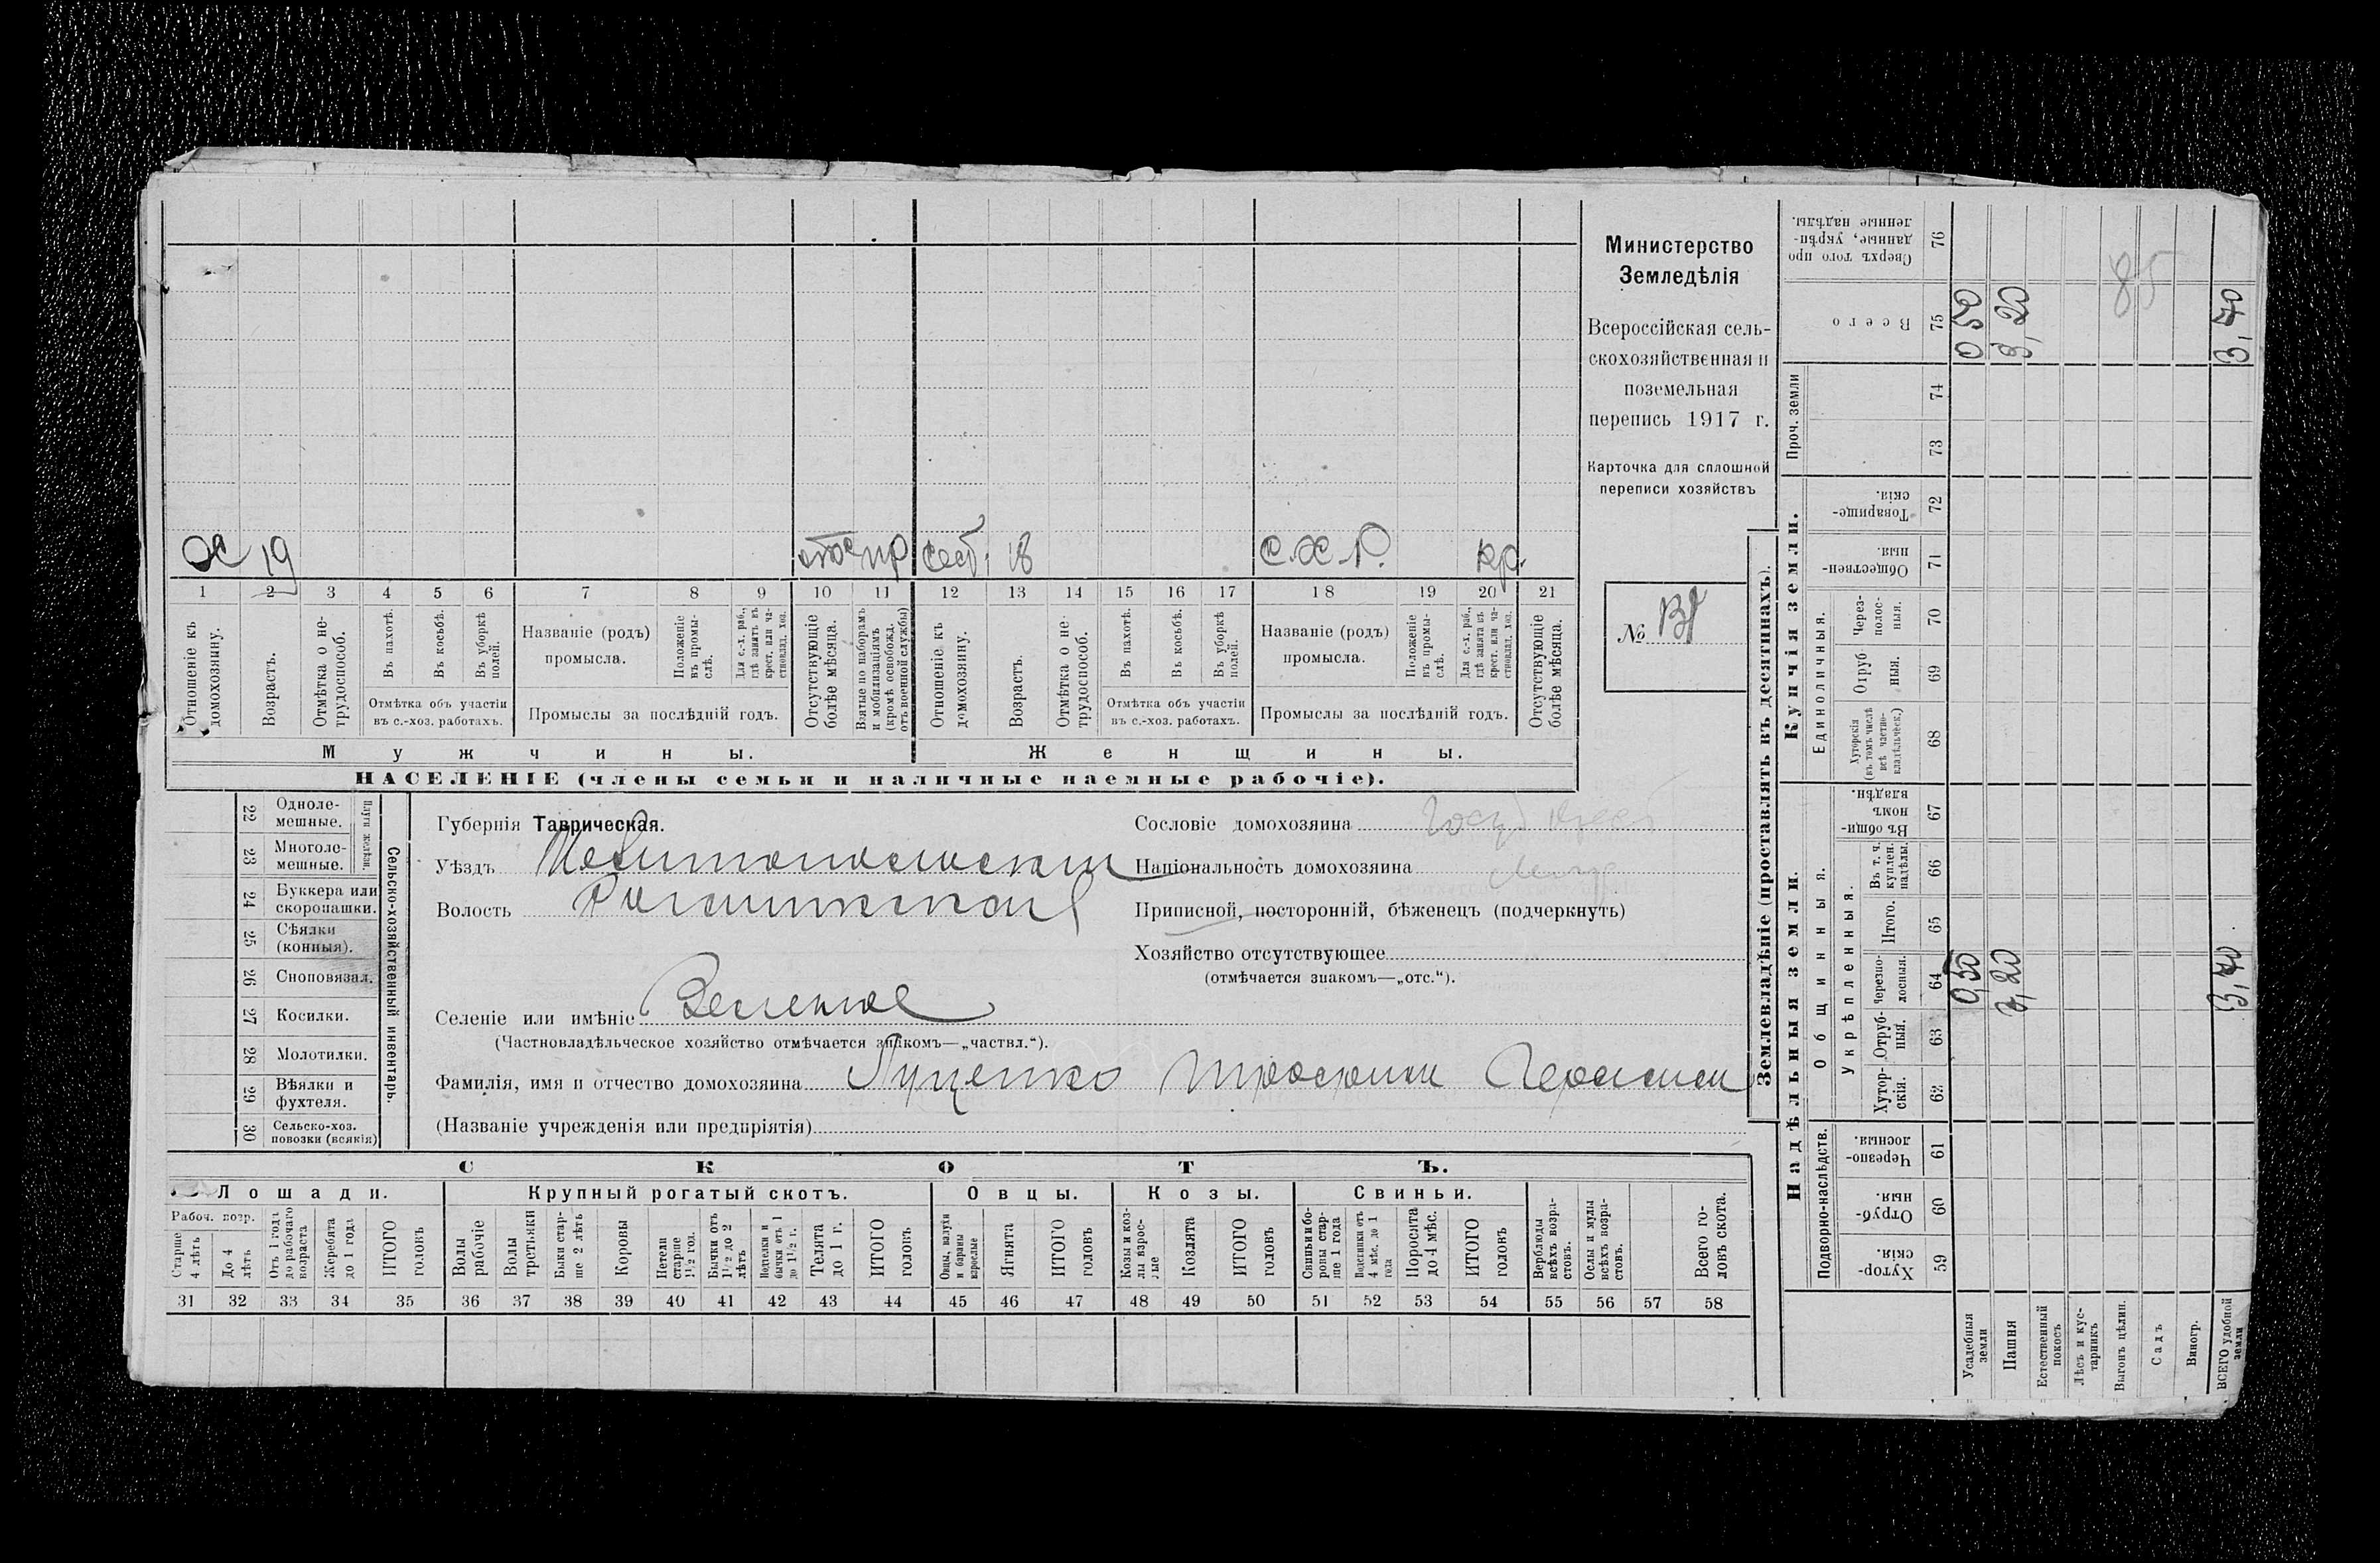 ОС 19 отс пр сест. 18 С.Х.Р. кр.
1 2 3 4 5 6 7 8 9 10 11 12 13 14 15 16 17 18 19 20 21
Отношеніе къ домохозяину.
Возрастъ.
Отмѣтка о не-
трудоспособ.
Въ пахотѣ.
Въ косьбѣ.
Въ уборкѣ
полей.
Отмѣтка объ участіи
въ с.-хоз. работахъ.
Названіе (родъ)
промысла.
Положеніе
въ промы-
слѣ.
Для с.-х. раб.,
гдѣ занятъ въ
крест. или ча-
стновлад. хоз.
Промыслы за послѣдній годъ.
Отсутствующіе
болѣе мѣсяца.
Взятые по наборамъ
и мобилизаціямъ
(кромѣ освобожд.
отъ военной службы)
Отношеніе къ
домохозяину.
Возрастъ.
Отмѣтка о не-
трудоспособ.
Въ пахотѣ.
Въ косьбѣ.
Въ уборкѣ
полей.
Отмѣтка объ участіи
въ с.-хоз. работахъ.
Названіе (родъ)
промысла.
Положеніе
въ промы-
слѣ.
Для с.-х. раб.,
гдѣ занята въ
крест. или ча-
стновлад. хоз.
Промыслы за послѣдній годъ.
Отсутствующіе
болѣе мѣсяца.
Мужчины.
Женщины.
НАСЕЛЕНІЕ (члены семьи и наличные наемные рабочіе).
Министерство
Земледѣлія
Всероссійская сель-
скохозяйственная и
поземельная
перепись 1917 г.
Карточка для сплошной
переписи хозяйствъ
№
22 Одноле-
мешные.
23 Многоле-
мешные.
Плуги желѣзн.
24 Буккера или
скоропашки.
25 Сѣялки
(конныя).
26 Сноповязал.
27 Косилки.
28 Молотилки.
29 Вѣялки и
фухтеля.
30 Сельско-хоз.
повозки (всякія)
Сельско-хозяйственный инвентарь.
Губернія Таврическая.
Уѣздъ Мелитопольскій
Волость
Селеніе или имѣніе Веселое
(Частновладѣльческое хозяйство отмѣчается знакомъ—„частвл.“).
Фамилія, имя и отчество домохозяина Луценко Трофим Герасим
(Названіе учрежденія или предпріятія)
Сословіе домохозяина Госуд Крест
Національность домохозяина
Приписной, посторонній, бѣженецъ (подчеркнуть)
Хозяйство отсутствующее
(отмѣчается знакомъ—„отс.“).
СКОТЪ.
Лошади.
Крупный рогатый скотъ.
Овцы.
Козы.
Свиньи.
Рабоч. возр.
Старше
4 лѣтъ
До 4
лѣтъ
Отъ 1 года
до рабочаго
возраста
Жеребята
до 1 года
ИТОГО
головъ
Волы
рабочіе
Волы
третьяки
Быки стар-
ше 2 лѣтъ
Коровы
Нетели
старше
1½ год.
Бычки отъ
1½ до 2
лѣтъ
Подтелки и
бычки отъ 1
до 1½ г.
Телята
до 1 г.
ИТОГО
головъ
Овцы, валухи
и бараны
взрослые
Ягнята
ИТОГО
головъ
Козы и коз-
лы взрос-
лые
Козлята
ИТОГО
головъ
Свиньи и бо-
ровы стар-
ше 1 года
Подсвинки отъ
4 мѣс. до 1
года
Поросята
до 4 мѣс.
ИТОГО
головъ
Верблюды
всѣхъ возра-
стовъ.
Ослы и мулы
всѣхъ возра-
стовъ.
Всего го-
ловъ скота.
31 32 33 34 35 36 37 38 39 40 41 42 43 44 45 46 47 48 49 50 51 52 53 54 55 56 57 58
Землевладѣніе (проставлять въ десятинахъ).
Надѣльныя земли.
Купчія земли.
Проч. земли
Подворно-наслѣдств.
Общинныя.
Укрѣпленныя.
Единоличныя.
Хутор-
скія. 59
Отруб-
ныя. 60
Черезпо-
лосныя. 61
Хутор-
скія. 62
Отруб-
ныя. 63
Черезпо-
лосныя. 64
Итого. 65
Въ т. ч.
куплен.
надѣлы. 66
Въ общин-
номъ
владѣн. 67
Хуторскія
(въ томъ числѣ
всѣ частно-
владѣльческ.) 68
Отруб
ныя. 69
Через-
полос-
ныя. 70
Обществен-
ныя. 71
Товарище-
скія. 72
73
74
Всего 75
Сверхъ того про
данные, укрѣп-
ленные надѣлы. 76
Усадебныя
земли 0,50 0 50
Пашня 3,20
Естественный
покосъ
Лѣсъ и кус-
тарникъ
Выгонъ цѣлин.
Садъ
Виногр.
ВСЕГО удобной
земли 3,70 3,70
85